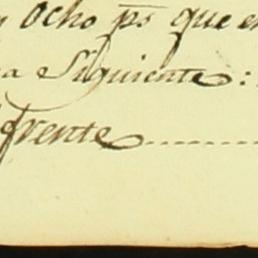 y Ocho p.s que en
a Siguiente :
frente